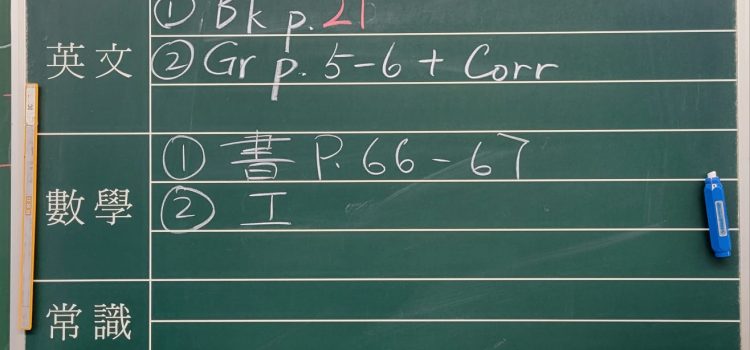 ① Bk p. 21
英文 ② Gr p. 5-6 + Corr
① 書 P. 66-67
數學 ② 工
常識